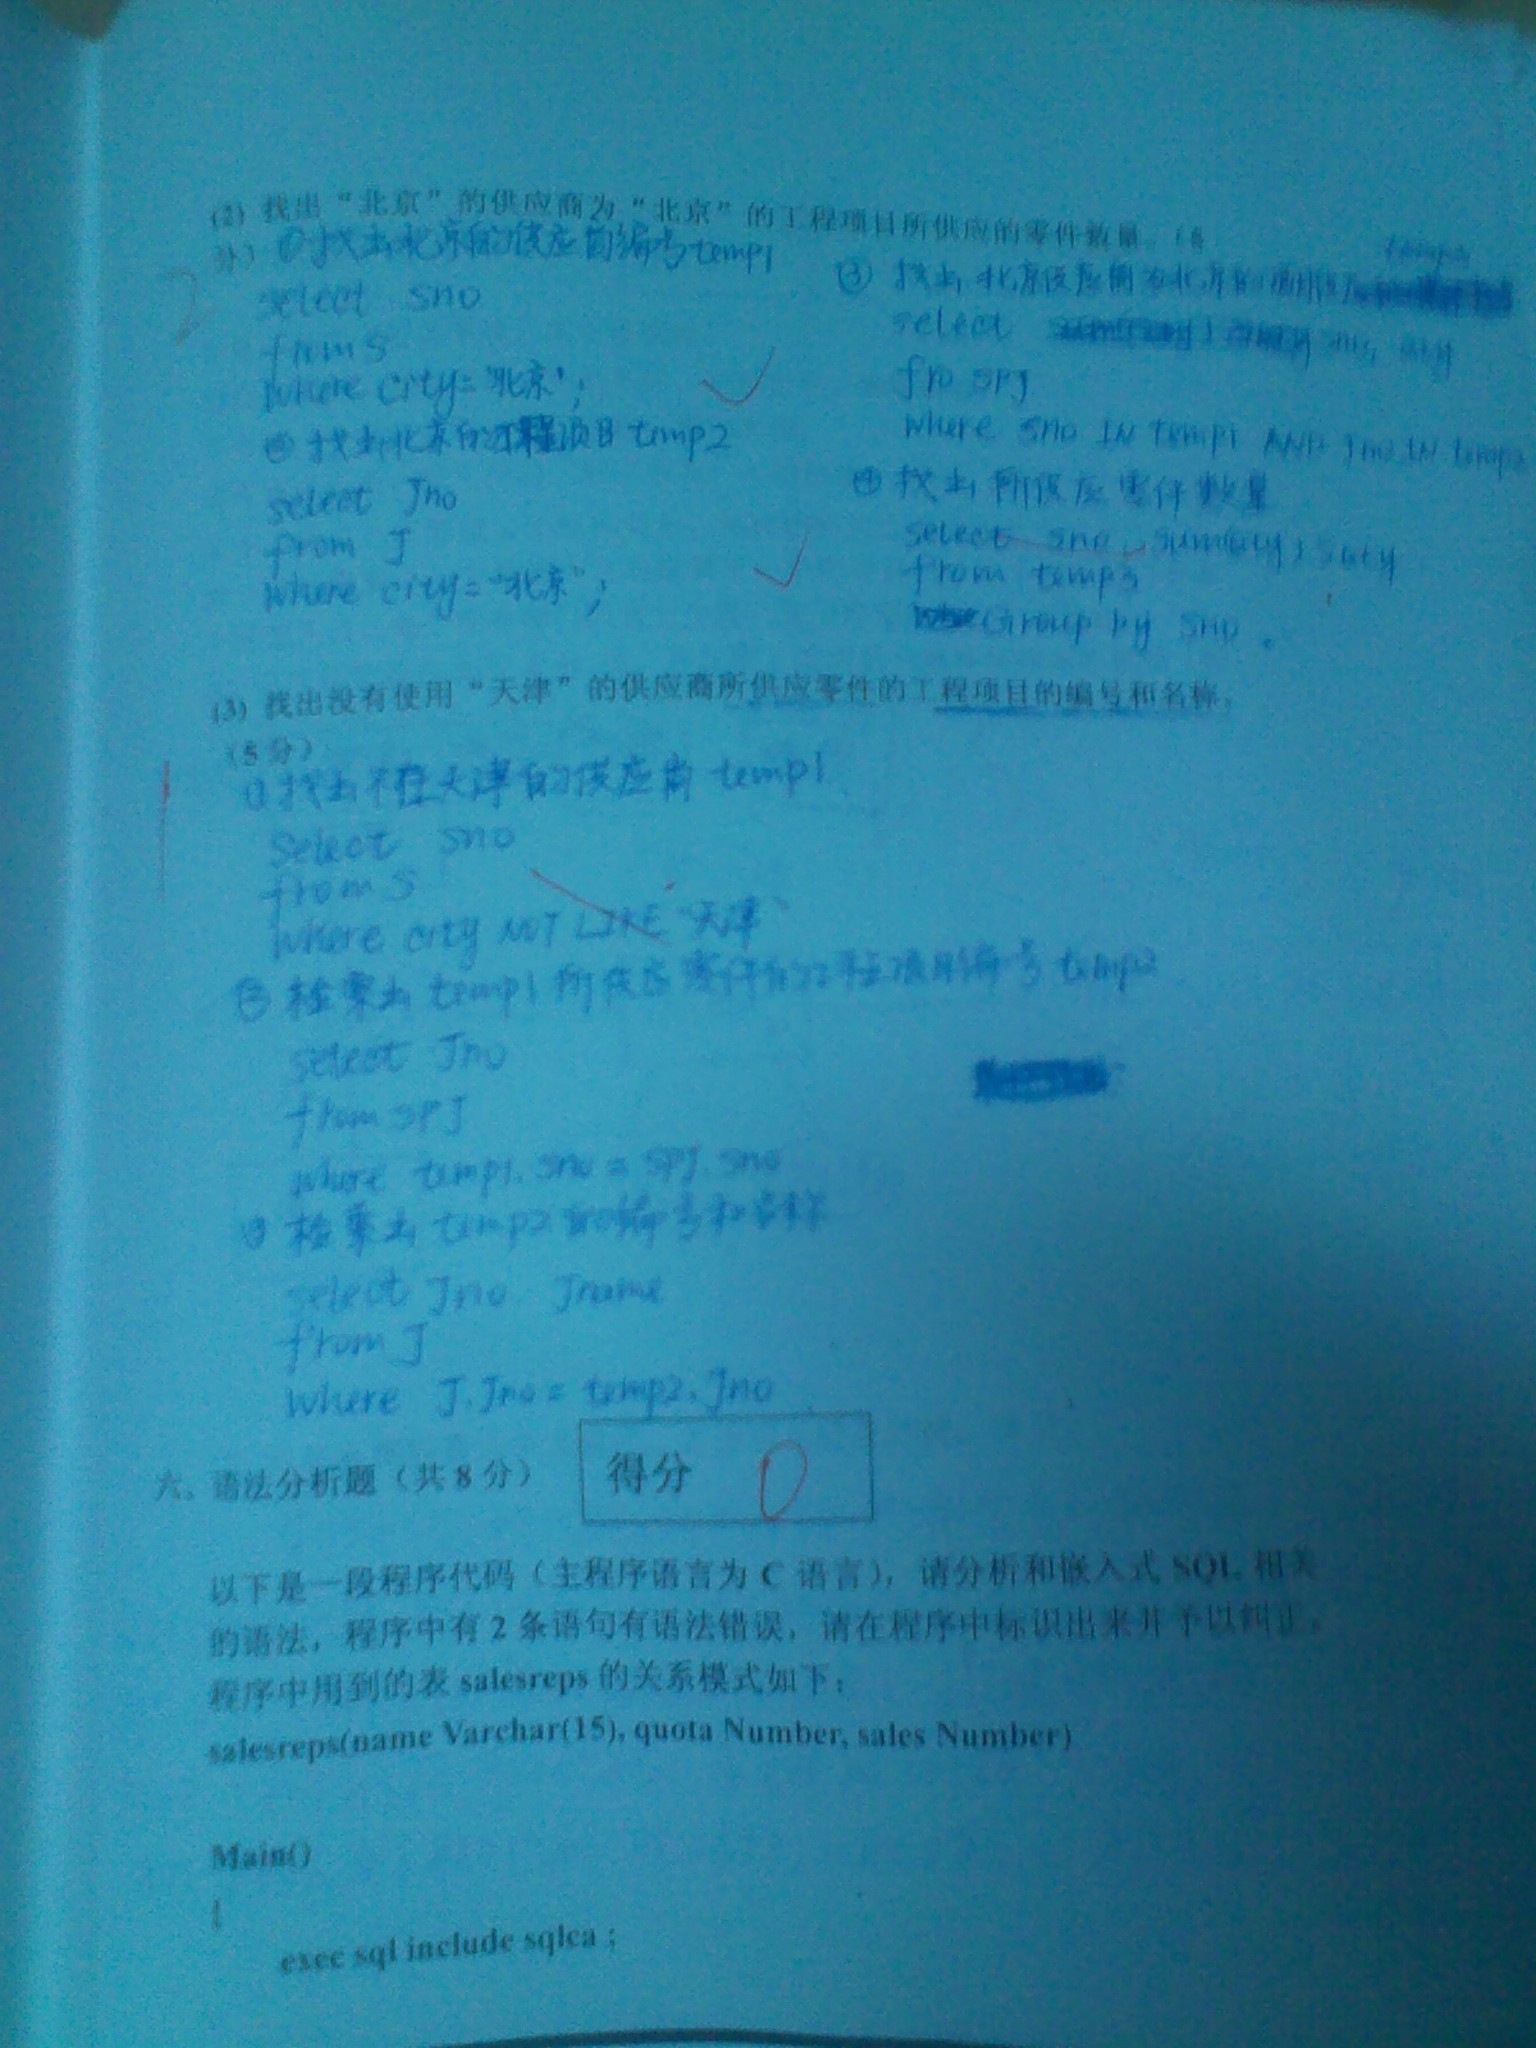 (2) 找出“北京”的供应商为“北京”的工程项目所供应的零件数量。(
分) ①找出北京的供应商编号temp1
select sno
from S
where city='北京';
②找出北京的工程项目temp2
select Jno
from J
where city="北京";
temp3
③ 找出北京供应商为北京的
select sno, qty
fro SPJ
where sno IN temp1 AND Jno IN temp2
④ 找出所供应零件数量
select sno, sum(qty) sqty
from temp3
Group by sno.
(3) 找出没有使用“天津”的供应商所供应零件的工程项目的编号和名称。
(5分)
①找出不在天津的供应商 temp1
Select sno
from S
where city NOT LIKE "天津"
② 检索出 temp1 所供应零件的工程项目编号 temp2
select Jno
from SPJ
where temp1.sno = SPJ.sno
③ 检索出 temp2 的编号和名称
select Jno Jname
from J
where J.Jno = temp2.Jno
六、语法分析题(共8分)
得分 0
以下是一段程序代码(主程序语言为 C 语言),请分析和嵌入式 SQL 相关
的语法,程序中有2条语句有语法错误,请在程序中标识出来并予以纠正。
程序中用到的表 salesreps 的关系模式如下:
salesreps(name Varchar(15), quota Number, sales Number)
Main()
{
exec sql include sqlca ;